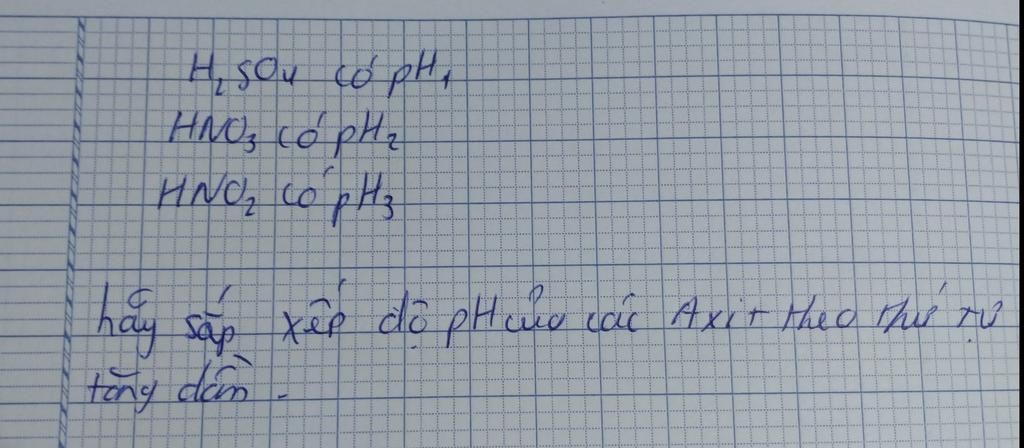 H₂SO₄ có pH₁
HNO₃ có pH₂
HNO₂ có pH₃
hãy sắp xếp độ pH của các Axit theo thứ tự
tăng dần.